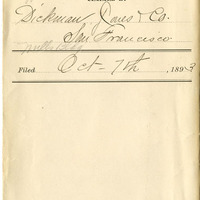 Dickman, Jones & Co.
San Francisco
Mills Bldg
Filed Oct- 7th, 1893